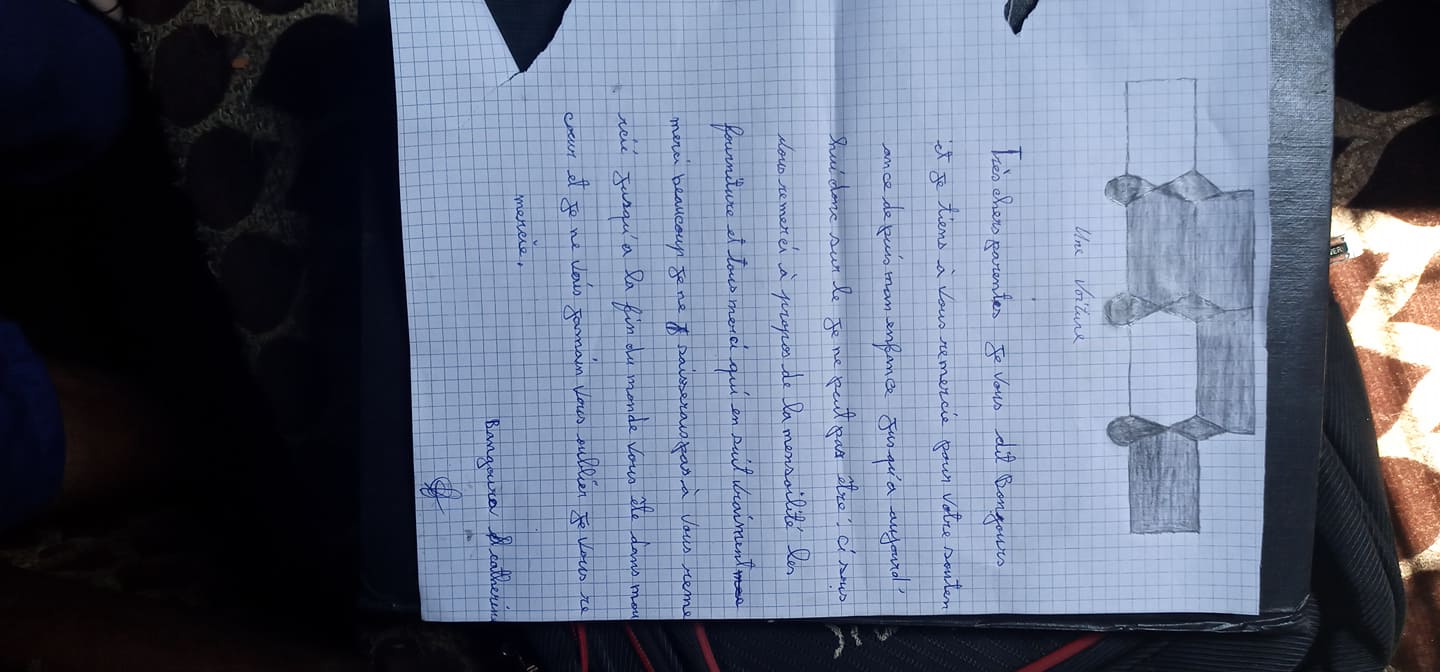 Une voiture
Très chers parentes je vous dit Bongours
et je tiens à vous remercie pour votre souten
ance depuis mon enfance jusqu'à aujourd'
hui donc sur le je ne peut pas être ici
vous remerci à propos de la mensoilité les
fourniture et tous merci qui en suit vraiment
merci beaucoup je ne saiserais pas à vous reme
rcié jusqu'à la fin du monde vous ête dans mon
cœur et je ne vais jamain vous oublier je vous re
mercie.
Bangoura catherine